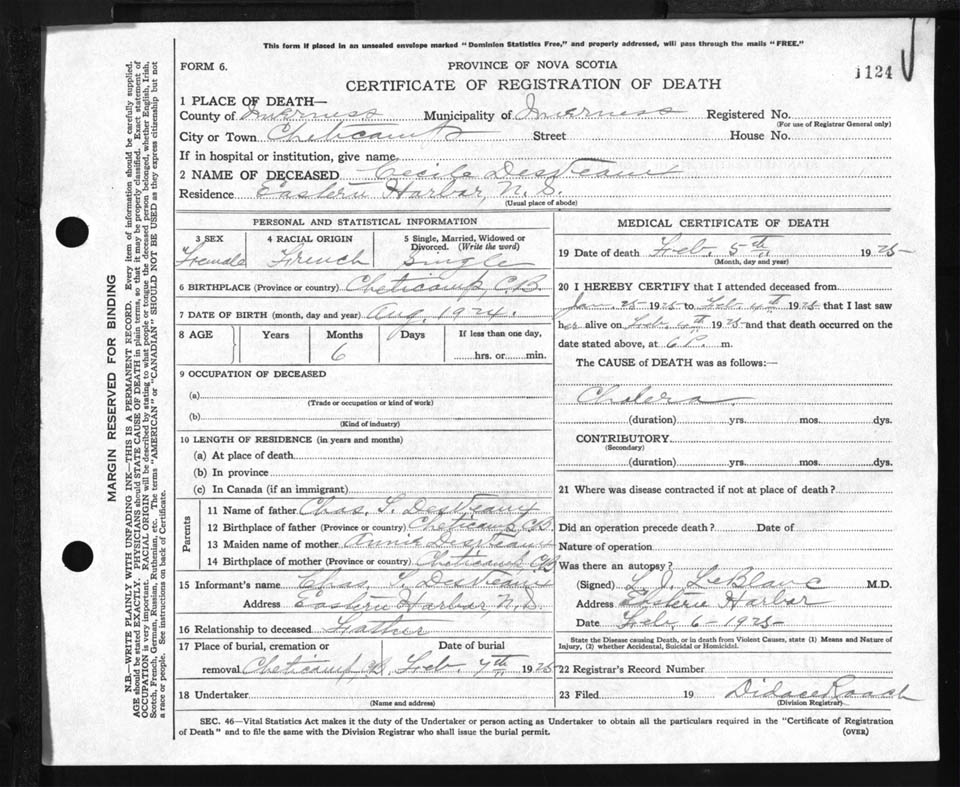 This form if placed in an unsealed envelope marked "Dominion Statistics Free," and properly addressed, will pass through the mails "FREE."
FORM 6.
PROVINCE OF NOVA SCOTIA
1124
CERTIFICATE OF REGISTRATION OF DEATH
1 PLACE OF DEATH—
County of Inverness Municipality of Inverness Registered No.
(For use of Registrar General only)
City or Town Cheticamp Street House No.
If in hospital or institution, give name
2 NAME OF DECEASED Cecile DesVeaux
Residence Eastern Harbor, N. S.
(Usual place of abode)
PERSONAL AND STATISTICAL INFORMATION
3 SEX 4 RACIAL ORIGIN 5 Single, Married, Widowed or Divorced. (Write the word)
Female French Single
6 BIRTHPLACE (Province or country) Cheticamp, C.B.
7 DATE OF BIRTH (month, day and year) Aug. 1924.
8 AGE Years Months Days If less than one day,
6 hrs. or min.
9 OCCUPATION OF DECEASED
(a)
(Trade or occupation or kind of work)
(b)
(Kind of industry)
10 LENGTH OF RESIDENCE (in years and months)
(a) At place of death
(b) In province
(c) In Canada (if an immigrant)
Parents
11 Name of father Chas. L. DesVeaux
12 Birthplace of father (Province or country) Cheticamp C.B.
13 Maiden name of mother Annie DesVeaux
14 Birthplace of mother (Province or country) Cheticamp C.B.
15 Informant's name Chas. L. DesVeaux
Address Eastern Harbor, N. S.
16 Relationship to deceased Father
17 Place of burial, cremation or Date of burial
removal Cheticamp, C.B. Feb. 7th 1925
18 Undertaker
(Name and address)
MEDICAL CERTIFICATE OF DEATH
19 Date of death Feb. 5th 1925
(Month, day and year)
20 I HEREBY CERTIFY that I attended deceased from
Jan. 25 1925 to Feb. 4th 1925 that I last saw
her alive on Feb. 4th 1925 and that death occurred on the
date stated above, at 6 P. m.
The CAUSE of DEATH was as follows:—
Cholera
(duration) yrs. mos. dys.
CONTRIBUTORY
(Secondary)
(duration) yrs. mos. dys.
21 Where was disease contracted if not at place of death?
Did an operation precede death? Date of
Nature of operation
Was there an autopsy?
(Signed) L. J. LeBlanc M.D.
Address Eastern Harbor
Date Feb. 6 - 1925
State the Disease causing Death, or in death from Violent Causes, state (1) Means and Nature of
Injury, (2) whether Accidental, Suicidal or Homicidal.
22 Registrar's Record Number
23 Filed 19 Didace Roach
(Division Registrar)
SEC. 46—Vital Statistics Act makes it the duty of the Undertaker or person acting as Undertaker to obtain all the particulars required in the "Certificate of Registration
of Death" and to file the same with the Division Registrar who shall issue the burial permit.
(OVER)
MARGIN RESERVED FOR BINDING
N.B.—WRITE PLAINLY WITH UNFADING INK—THIS IS A PERMANENT RECORD. Every item of information should be carefully supplied.
AGE should be stated EXACTLY. PHYSICIANS should STATE CAUSE OF DEATH in plain terms, so that it may be properly classified. Exact statement of
OCCUPATION is very important. RACIAL ORIGIN will be described by stating to what people or tongue the deceased person belonged, whether English, Irish,
Scotch, French, German, Russian, Ruthenian, etc. The terms "AMERICAN" or "CANADIAN" SHOULD NOT BE USED as they express citizenship but not
a race or people. See instructions on back of Certificate.